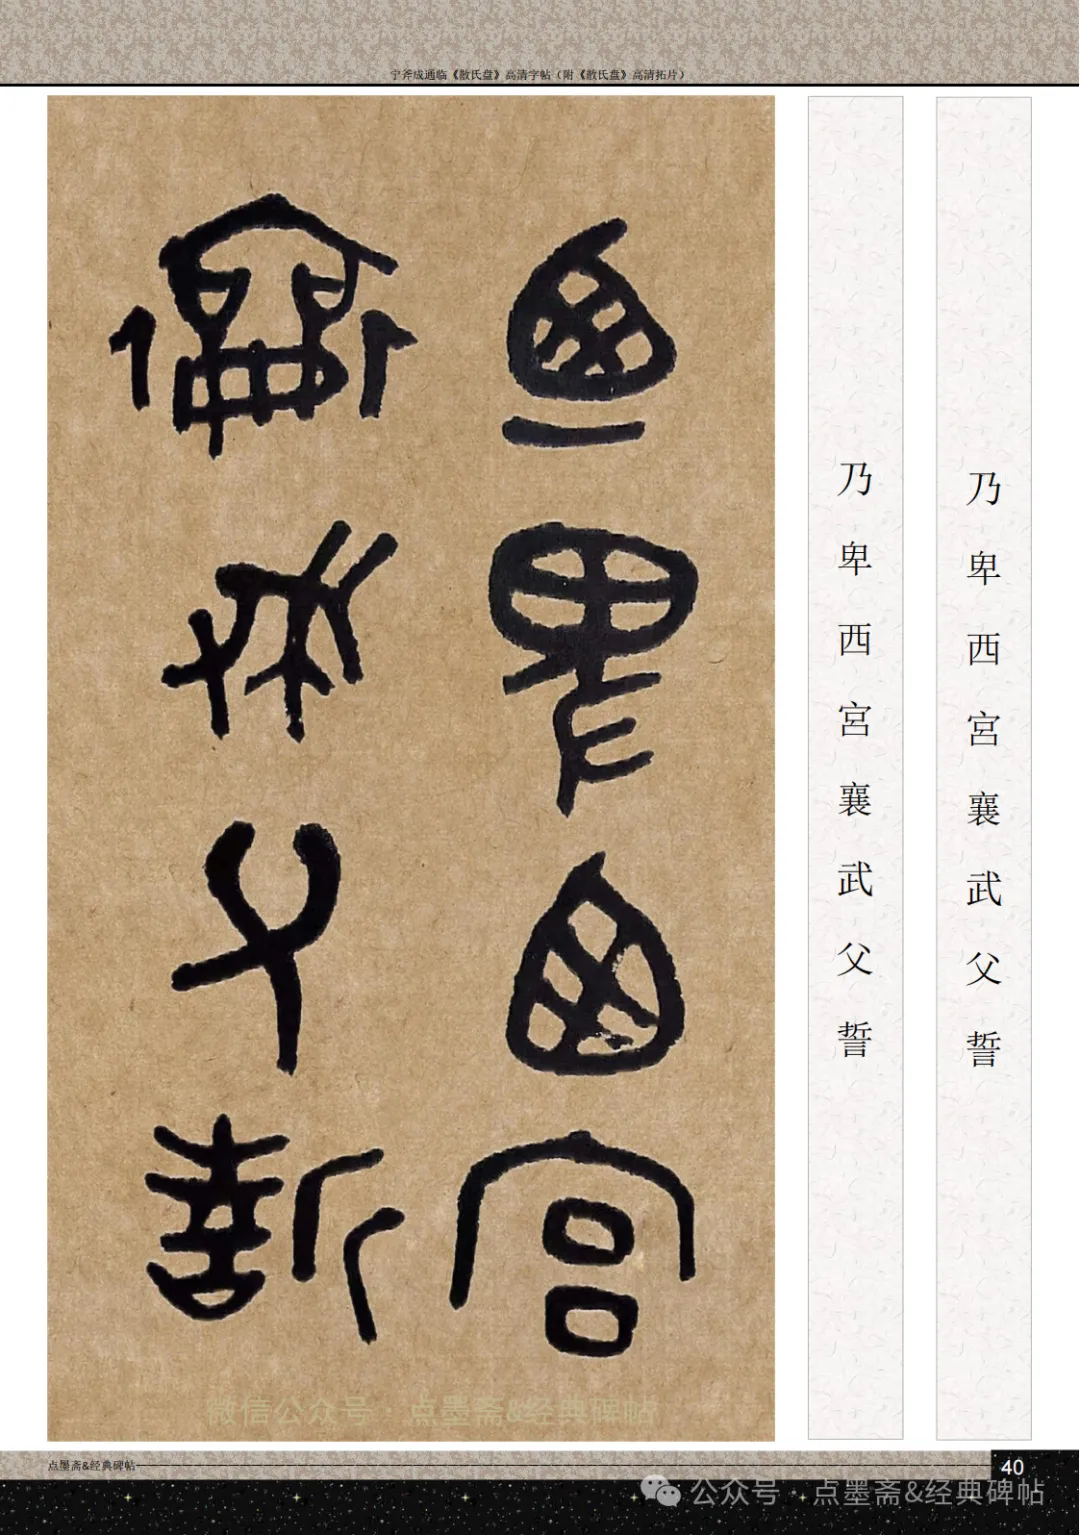 宁斧成通临《散氏盘》高清字帖（附《散氏盘》高清拓片）
乃卑西宮
襄武父誓
乃卑西宮襄武父誓
乃卑西宮襄武父誓
微信公众号·点墨斋&经典碑帖
点墨斋&经典碑帖
40
公众号·点墨斋&经典碑帖